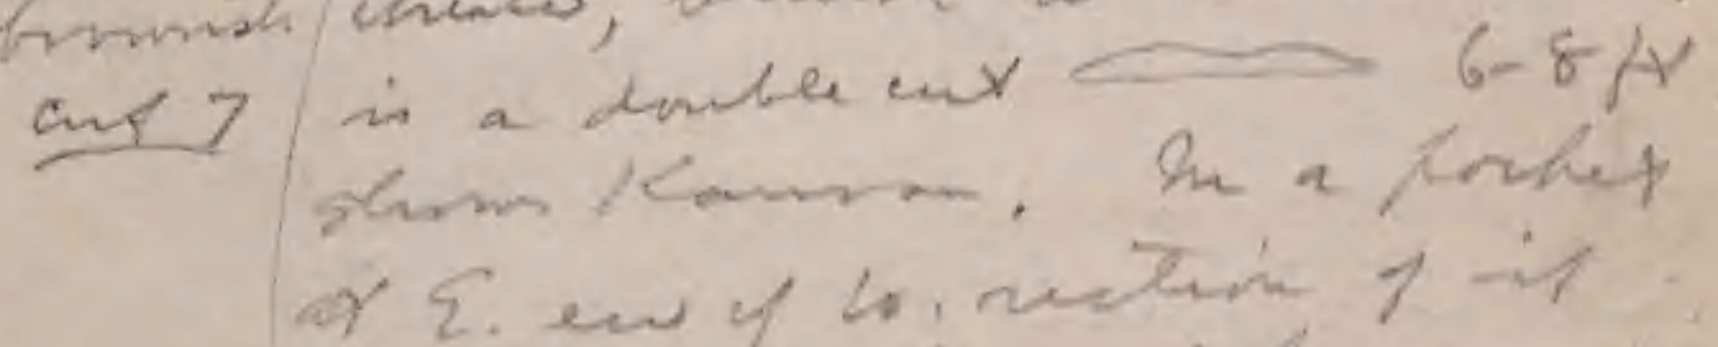 brownish
cut 7 is a double cut 6-8 ft
shows Kansan. In a pocket
at E. end of W. section of it